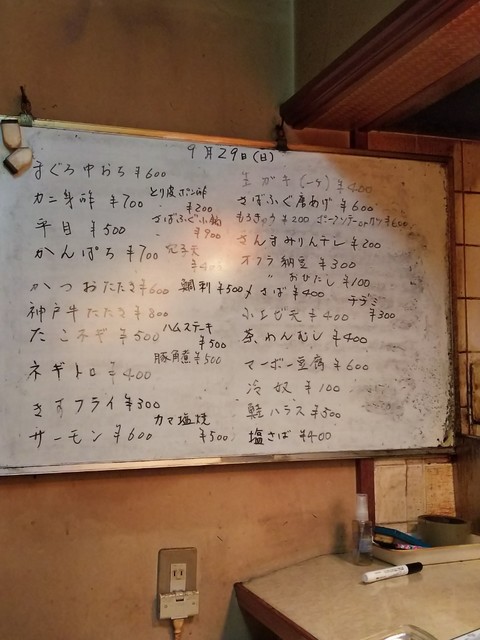 9月29日(日)
まぐろ中おち ¥600
カニ身酢 ¥700
平目 ¥500
かんぱち ¥700
かつおたたき ¥600
神戸牛たたき ¥800
たこネギ ¥500
ネギトロ ¥400
きすフライ ¥300
サーモン ¥600
とり皮ポン酢
¥200
さばふぐ小鍋
¥900
穴子天
鯛刺 ¥500
ハムステーキ
¥500
豚角煮 ¥500
カマ塩焼
¥500
生ガキ(一ケ) ¥400
さばふぐ唐あげ ¥600
もろきゅう ¥200
さんまみりんテレ ¥200
オクラ納豆 ¥300
〃 おひたし ¥100
〆さば ¥400
チヂミ
¥300
小エビ天 ¥400
茶わんむし ¥400
マーボー豆腐 ¥600
冷奴 ¥100
鮭ハラス ¥500
塩さば ¥400